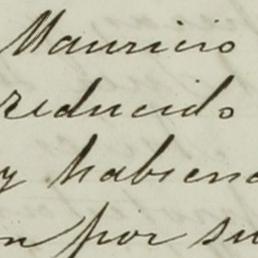 Mauricio
reducido
y habiend
n por su